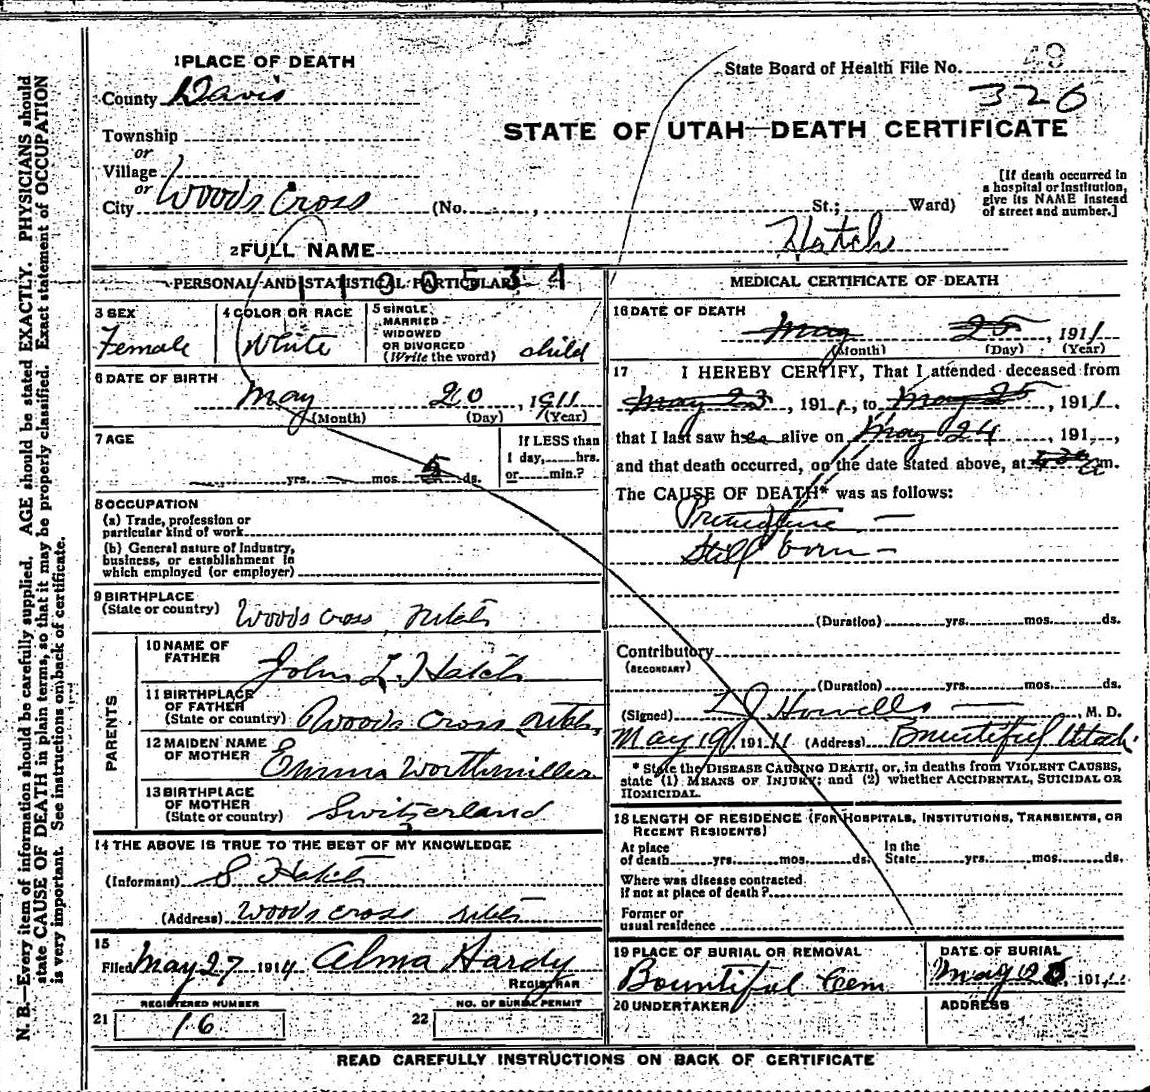 1 PLACE OF DEATH
County Davis
Township
or
Village
or
City Woods Cross (No. , St.; Ward)
State Board of Health File No. 49
326
STATE OF UTAH—DEATH CERTIFICATE
[If death occurred in
a hospital or institution,
give its NAME instead
of street and number.]
2 FULL NAME Hatch
PERSONAL AND STATISTICAL PARTICULARS
1190534
3 SEX
Female
4 COLOR OR RACE
White
5 SINGLE,
MARRIED
WIDOWED
OR DIVORCED
(Write the word) child
6 DATE OF BIRTH
May 20, 1911
(Month) (Day) (Year)
7 AGE
yrs. mos. 5 ds.
If LESS than
1 day, hrs.
or min.?
8 OCCUPATION
(a) Trade, profession or
particular kind of work
(b) General nature of industry,
business, or establishment in
which employed (or employer)
9 BIRTHPLACE
(State or country) Woods cross, Utah
PARENTS
10 NAME OF
FATHER John L. Hatch
11 BIRTHPLACE
OF FATHER
(State or country) Woods cross, Utah,
12 MAIDEN NAME
OF MOTHER Emma Worthmiller
13 BIRTHPLACE
OF MOTHER
(State or country) Switzerland
14 THE ABOVE IS TRUE TO THE BEST OF MY KNOWLEDGE
(Informant) S Hatch
(Address) Woods cross Utah
15
Filed May 27, 1911 Alma Hardy
REGISTRAR
REGISTERED NUMBER NO. OF BURIAL PERMIT
21 16 22
MEDICAL CERTIFICATE OF DEATH
16 DATE OF DEATH
May 25, 1911
(Month) (Day) (Year)
17 I HEREBY CERTIFY, That I attended deceased from
May 23, 1911, to May 25, 1911.
that I last saw her alive on May 24, 191 ,
and that death occurred, on the date stated above, at a m.
The CAUSE OF DEATH* was as follows:
Premature —
Still born —
(Duration) yrs. mos. ds.
Contributory
(SECONDARY)
(Duration) yrs. mos. ds.
(Signed) L J Howells — M. D.
May 19, 1911 (Address) Bountiful Utah.
* State the DISEASE CAUSING DEATH, or, in deaths from VIOLENT CAUSES,
state (1) MEANS OF INJURY; and (2) whether ACCIDENTAL, SUICIDAL OR
HOMICIDAL.
18 LENGTH OF RESIDENCE (FOR HOSPITALS, INSTITUTIONS, TRANSIENTS, OR
RECENT RESIDENTS)
At place
of death yrs. mos. ds.
In the
State yrs. mos. ds.
Where was disease contracted
if not at place of death?
Former or
usual residence
19 PLACE OF BURIAL OR REMOVAL
Bountiful Cem
DATE OF BURIAL
May 20, 1911
20 UNDERTAKER
ADDRESS
READ CAREFULLY INSTRUCTIONS ON BACK OF CERTIFICATE
N. B.—Every item of information should be carefully supplied. AGE should be stated EXACTLY. PHYSICIANS should
state CAUSE OF DEATH in plain terms, so that it may be properly classified. Exact statement of OCCUPATION
is very important. See instructions on back of certificate.